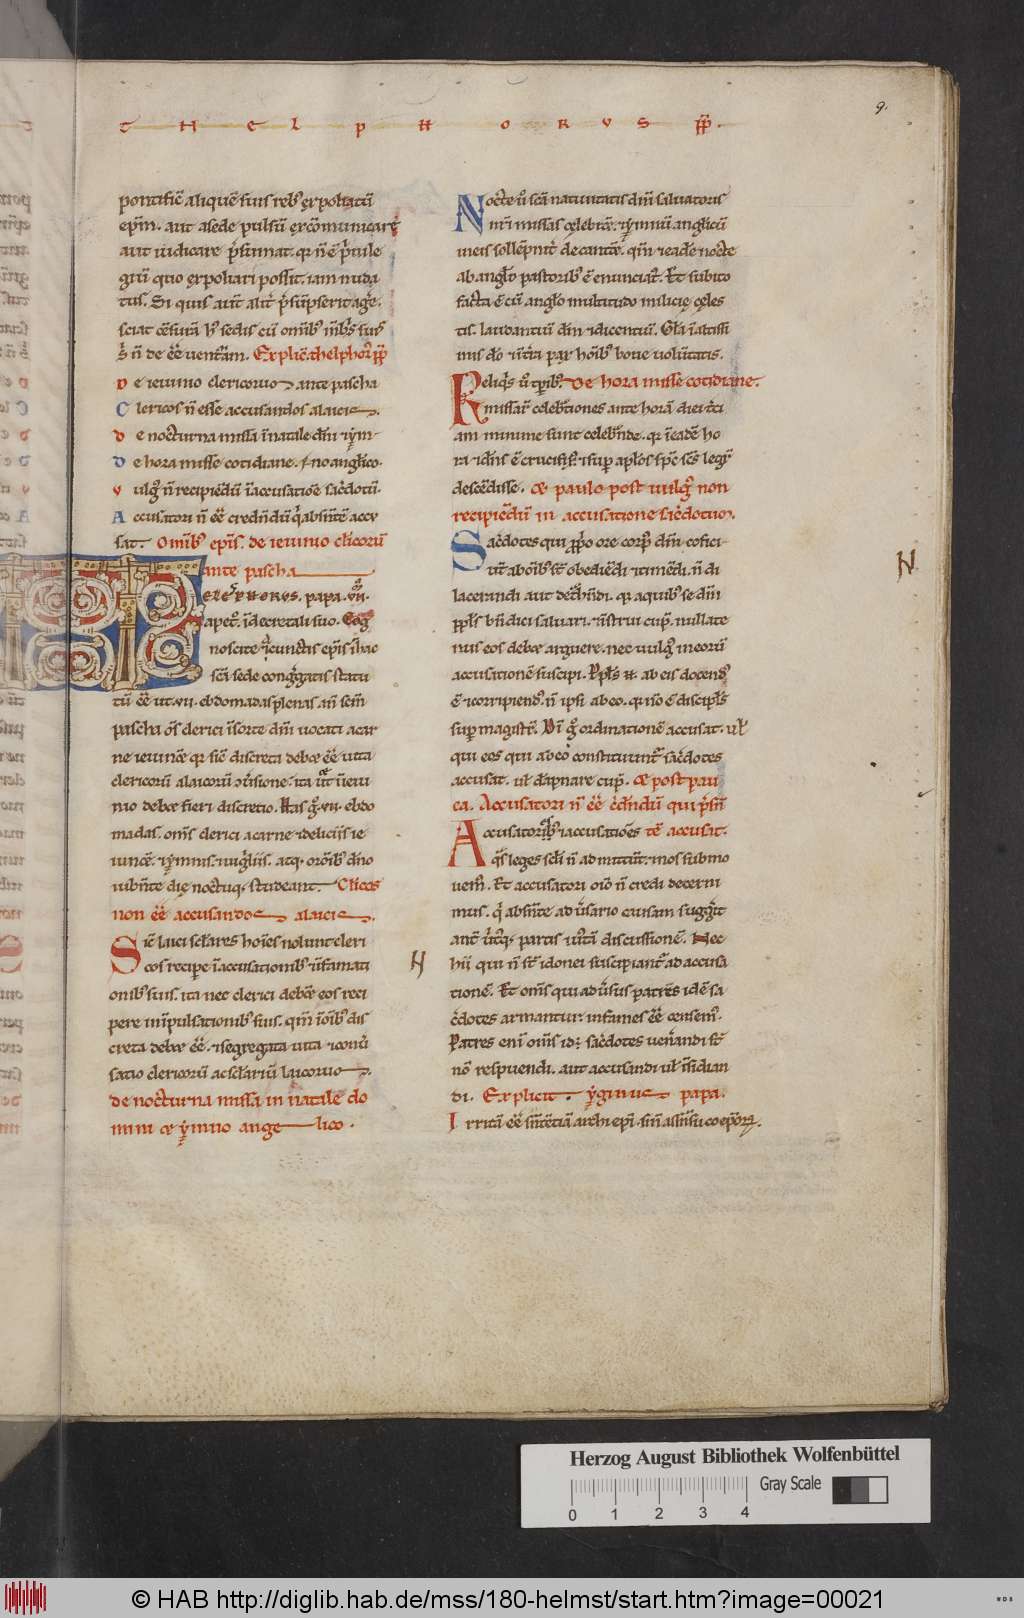 T H E L P H O R V S PP̄.
9.
pontific̄ aliquē suis reb᷒ exp̱oliatū
ep̄m. aut a sede pulsū excōmunicare
aut iudicare p̄sumat. qr̄ n̄ ē p̄uile
giū quo expoliari possit. iam nuda
tus. Si quis aut̄ alit̄ p̄sūpserit agr̄e.
sciat cēsurā hꝰ sedis cū om̄ibꝰ mēbr̄s suis
s; n̄ de ēē uentur̄am. Explic̄ thelphor᷒ pp̄
De ieiunio clericorum ante pascha
Clericos n̄ esse accusandos a laicis.
De nocturna missa ī natale dn̄i ⁊ ymn̄
De hora misse cotidiane. ⁊ no anglico.
Vulg᷒ n̄ recipiēdū ī accusatiōe sac̄dotū.
Accusatori n̄ ēē credn̄dū q̄ absn̄te accu
sat. Om̄ibꝰ ep̄is. de ieiunio cl̄icorū
ante pascha
TELESPHORUS. papa. VII.
noscite q̄ cunctis ep̄is s̄ hac
sc̄a sede congr̄gatis statu
tū ēē ut .vii. ebdomadas plenas. an̄ sc̄m
pascha om̄s clerici ī sorte dn̄i uocati a car
ne ieiunēt. qr̄ sic̄ discreta debet ēē uita
clericorū a laicorū ꝯuersione. ita ⁊ ī ieiu
nio debet fieri discretio. Has g̊ .vii. ebdo
madas. om̄s clerici a carne ⁊ deliciis ie
iunēt. ⁊ ymnis. uigiliis. atq; orōibꝰ dn̄o
inhr̄ente die noctuq; studeant. Cl̄icos
non ēē accusandos a laicis.
Sic̄ laici sc̄lares hoīes nolunt cleri
cos recipe ī accusationibꝰ ⁊ īfamati
onibꝰ suis. ita nec clerici debēt eos reci
pere in īpulsationibꝰ suis. qm̄ ī oībꝰ dis
creta debet ēē. ⁊ segregata uita ⁊ conu̓
satio clericorū ac sc̄lariū laicorum.
de nocturna missa in natale do
mini et ymno angelico.
Nocte u̓ sc̄a natiuitatis dn̄i saluatoris
nr̄i missas celebrēt. ⁊ ymnū anglicū
in eis sollēpnit̄ decantēt. qm̄ ⁊ eadē nocte
ab anglo pastoribꝰ ē enunciat᷒. Et subito
facta ē cū anglo multitudo milicie celes
tis. laudantiū dm̄ ⁊ dicentiū. Gl̄a ī altissi
mis do ⁊ ī tr̄a pax hoībꝰ bone uolūtatis.
Reliq̄s u̓ tp̄ribꝰ De hora misse cotidiane.
missar̄ celebrationes ante horā diei tc̄i
am minime sunt celebrāde. qr̄ ⁊ eadē ho
ra ⁊ dn̄s ē crucifix᷒. ⁊ sup aplos sp̄c sc̄s legit̄
descēdisse. Et paulo post uulg᷒ non
recipiēdū in accusatione sac̄dotum.
Sac̄dotes qui pp̄o ore corp᷒ dn̄i cōfici
ūt ab oībꝰ sūt obediēdi ⁊ timēdi. n̄ di
lacerandi aut det̄hndi. qr̄ a quibꝰ se dn̄i
pp̄ls bn̄dici saluari. ⁊ īstrui cup̄. nullate
nus eos debet arguere. nec uulg᷒ in eorū
accusationē suscipi. Pp̄ls n̄. ab eis docend᷒
ē ⁊ corripiend᷒. n̄ ipsi ab eo. qr̄ n̄ ē discipl̄s
sup magistr̄. Di g̊ ordinationē accusat. ul̄
qui eos qui ab eo constituunt᷒ sac̄dotes
accusat. ul̄ dāpnare cup̄. et post pau
ca. Accusatori n̄ ēē c̄dn̄dū qui p̄sn̄
Accusatoribꝰ ⁊ accusatiōes tē accusat.
q̄s leges sc̄li n̄ admittūt. nos submo
uem᷒. Et accusatori oīo n̄ credi decerni
mus. q̄ absn̄te aduersario causam suggerit
ante utriq; partis iustā discussionē. Nec
hii qui n̄ sūt idonei suscipiant᷒ ad accusa
tionē. Et om̄s qui aduersus patres idē sa
c̄dotes armantur. infames ēē censem᷒.
Patres eni om̄s idē sac̄dotes uen̄andi sūt
nō respuendi. aut accusandi ul̄ īsidian
di. Explicit. yginus papa.
Irritā ēē sn̄tētiā archiep̄i sin̄ assn̄su coep̄orȝ.
H
H
Herzog August Bibliothek Wolfenbüttel
Gray Scale
0 1 2 3 4
© HAB http://diglib.hab.de/mss/180-helmst/start.htm?image=00021